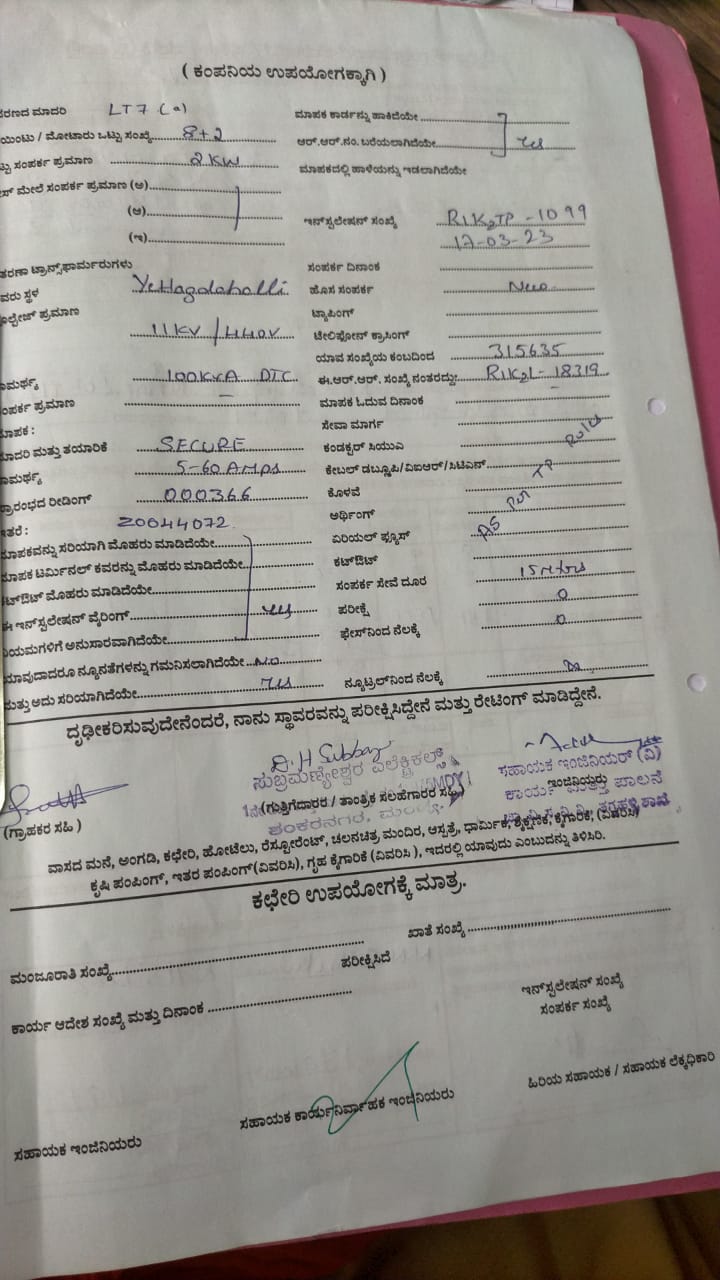 ( ಕಂಪನಿಯ ಉಪಯೋಗಕ್ಕಾಗಿ )
ರಣದ ಮಾದರಿ LT7 (a)
ಯಿಂಟು / ಮೋಟಾರು ಒಟ್ಟು ಸಂಖ್ಯೆ 8+2
ಟ್ಟು ಸಂಪರ್ಕ ಪ್ರಮಾಣ 2KW
ಸ್ ಮೇಲೆ ಸಂಪರ್ಕ ಪ್ರಮಾಣ (ಅ)
(ಆ)
(ಇ)
ತರಣಾ ಟ್ರಾನ್ಸ್‌ಫಾರ್ಮರುಗಳು
ವರು ಸ್ಥಳ Yettagadahalli
ೋಲ್ಟೇಜ್ ಪ್ರಮಾಣ
11KV / 440V
ಾಮರ್ಥ್ಯ 100KVA DTC
ಂಪರ್ಕ ಪ್ರಮಾಣ –
ಾಪಕ :
ಾದರಿ ಮತ್ತು ತಯಾರಿಕೆ SECURE
ಾಮರ್ಥ್ಯ 5-60AMPS
್ರಾರಂಭದ ರೀಡಿಂಗ್ 000366
ತರೆ : 20044072
ಾಪಕವನ್ನು ಸರಿಯಾಗಿ ಮೊಹರು ಮಾಡಿದೆಯೇ
ಾಪಕ ಟರ್ಮಿನಲ್ ಕವರನ್ನು ಮೊಹರು ಮಾಡಿದೆಯೇ
ಟ್‌ಔಟ್ ಮೊಹರು ಮಾಡಿದೆಯೇ
ಈ ಇನ್‌ಸ್ಟಲೇಷನ್ ವೈರಿಂಗ್ yes
ಿಯಮಗಳಿಗೆ ಅನುಸಾರವಾಗಿದೆಯೇ
ಯಾವುದಾದರೂ ನ್ಯೂನತೆಗಳನ್ನು ಗಮನಿಸಲಾಗಿದೆಯೇ No
ಮತ್ತು ಅದು ಸರಿಯಾಗಿದೆಯೇ yes
ಮಾಪಕ ಕಾರ್ಡನ್ನು ಹಾಕಿದೆಯೇ
ಆರ್.ಆರ್.ನಂ. ಬರೆಯಲಾಗಿದೆಯೇ yes
ಮಾಪಕದಲ್ಲಿ ಹಾಳೆಯನ್ನು ಇಡಲಾಗಿದೆಯೇ
ಇನ್‌ಸ್ಟಲೇಷನ್ ಸಂಖ್ಯೆ R1K2TP - 1099
17-03-23
ಸಂಪರ್ಕ ದಿನಾಂಕ
ಹೊಸ ಸಂಪರ್ಕ New
ಟ್ಯಾಪಿಂಗ್
ಟೆಲಿಫೋನ್ ಕ್ರಾಸಿಂಗ್
ಯಾವ ಸಂಖ್ಯೆಯ ಕಂಬದಿಂದ 315635
ಈ.ಆರ್.ಆರ್. ಸಂಖ್ಯೆ ನಂತರದ್ದು: R1K2L - 18319
ಮಾಪಕ ಓದುವ ದಿನಾಂಕ –
ಸೇವಾ ಮಾರ್ಗ
ಕಂಡಕ್ಟರ್ ಸಿಯುಎ
ಕೇಬಲ್ ಡಬ್ಲ್ಯೂಪಿ/ವಿಐಆರ್/ಸಿಟಿಎನ್
ಕೊಳವೆ
ಅರ್ಥಿಂಗ್
ಏರಿಯಲ್ ಫ್ಯೂಸ್
ಕಟ್‌ಔಟ್
ಸಂಪರ್ಕ ಸೇವೆ ದೂರ 15 meters
ಪರೀಕ್ಷೆ 0
ಫೇಸ್‌ನಿಂದ ನೆಲಕ್ಕೆ 0
ನ್ಯೂಟ್ರಲ್‌ನಿಂದ ನೆಲಕ್ಕೆ
ದೃಢೀಕರಿಸುವುದೇನೆಂದರೆ, ನಾನು ಸ್ಥಾವರವನ್ನು ಪರೀಕ್ಷಿಸಿದ್ದೇನೆ ಮತ್ತು ರೇಟಿಂಗ್ ಮಾಡಿದ್ದೇನೆ.
D.H Subbay
ಸುಬ್ರಮಣ್ಯೇಶ್ವರ ಎಲೆಕ್ಟ್ರಿಕಲ್ಸ್
(ಗುತ್ತಿಗೆದಾರರ / ತಾಂತ್ರಿಕ ಸಲಹೆಗಾರರ ಸಹಿ)
ಶಂಕರನಗರ, ಮಂಡ್ಯ
ಸಹಾಯಕ ಇಂಜಿನಿಯರ್ (ವಿ)
ಇಂಜಿನಿಯರು
ಕಾರ್ಯ ಮತ್ತು ಪಾಲನೆ
(ಗ್ರಾಹಕರ ಸಹಿ )
ವಾಸದ ಮನೆ, ಅಂಗಡಿ, ಕಛೇರಿ, ಹೋಟೆಲು, ರೆಸ್ಟೋರೆಂಟ್, ಚಲನಚಿತ್ರ ಮಂದಿರ, ಆಸ್ಪತ್ರೆ, ಧಾರ್ಮಿಕ, ಶೈಕ್ಷಣಿಕ, ಕೈಗಾರಿಕೆ, (ವಿವರಿಸಿ)
ಕೃಷಿ ಪಂಪಿಂಗ್, ಇತರ ಪಂಪಿಂಗ್(ವಿವರಿಸಿ), ಗೃಹ ಕೈಗಾರಿಕೆ (ವಿವರಿಸಿ ), ಇದರಲ್ಲಿ ಯಾವುದು ಎಂಬುದನ್ನು ತಿಳಿಸಿರಿ.
ಕಛೇರಿ ಉಪಯೋಗಕ್ಕೆ ಮಾತ್ರ.
ಮಂಜೂರಾತಿ ಸಂಖ್ಯೆ
ಖಾತೆ ಸಂಖ್ಯೆ
ಪರೀಕ್ಷಿಸಿದೆ
ಕಾರ್ಯ ಆದೇಶ ಸಂಖ್ಯೆ ಮತ್ತು ದಿನಾಂಕ
ಇನ್‌ಸ್ಟಲೇಷನ್ ಸಂಖ್ಯೆ
ಸಂಪರ್ಕ ಸಂಖ್ಯೆ
ಸಹಾಯಕ ಇಂಜಿನಿಯರು
ಸಹಾಯಕ ಕಾರ್ಯನಿರ್ವಾಹಕ ಇಂಜಿನಿಯರು
ಹಿರಿಯ ಸಹಾಯಕ / ಸಹಾಯಕ ಲೆಕ್ಕಧಿಕಾರಿ